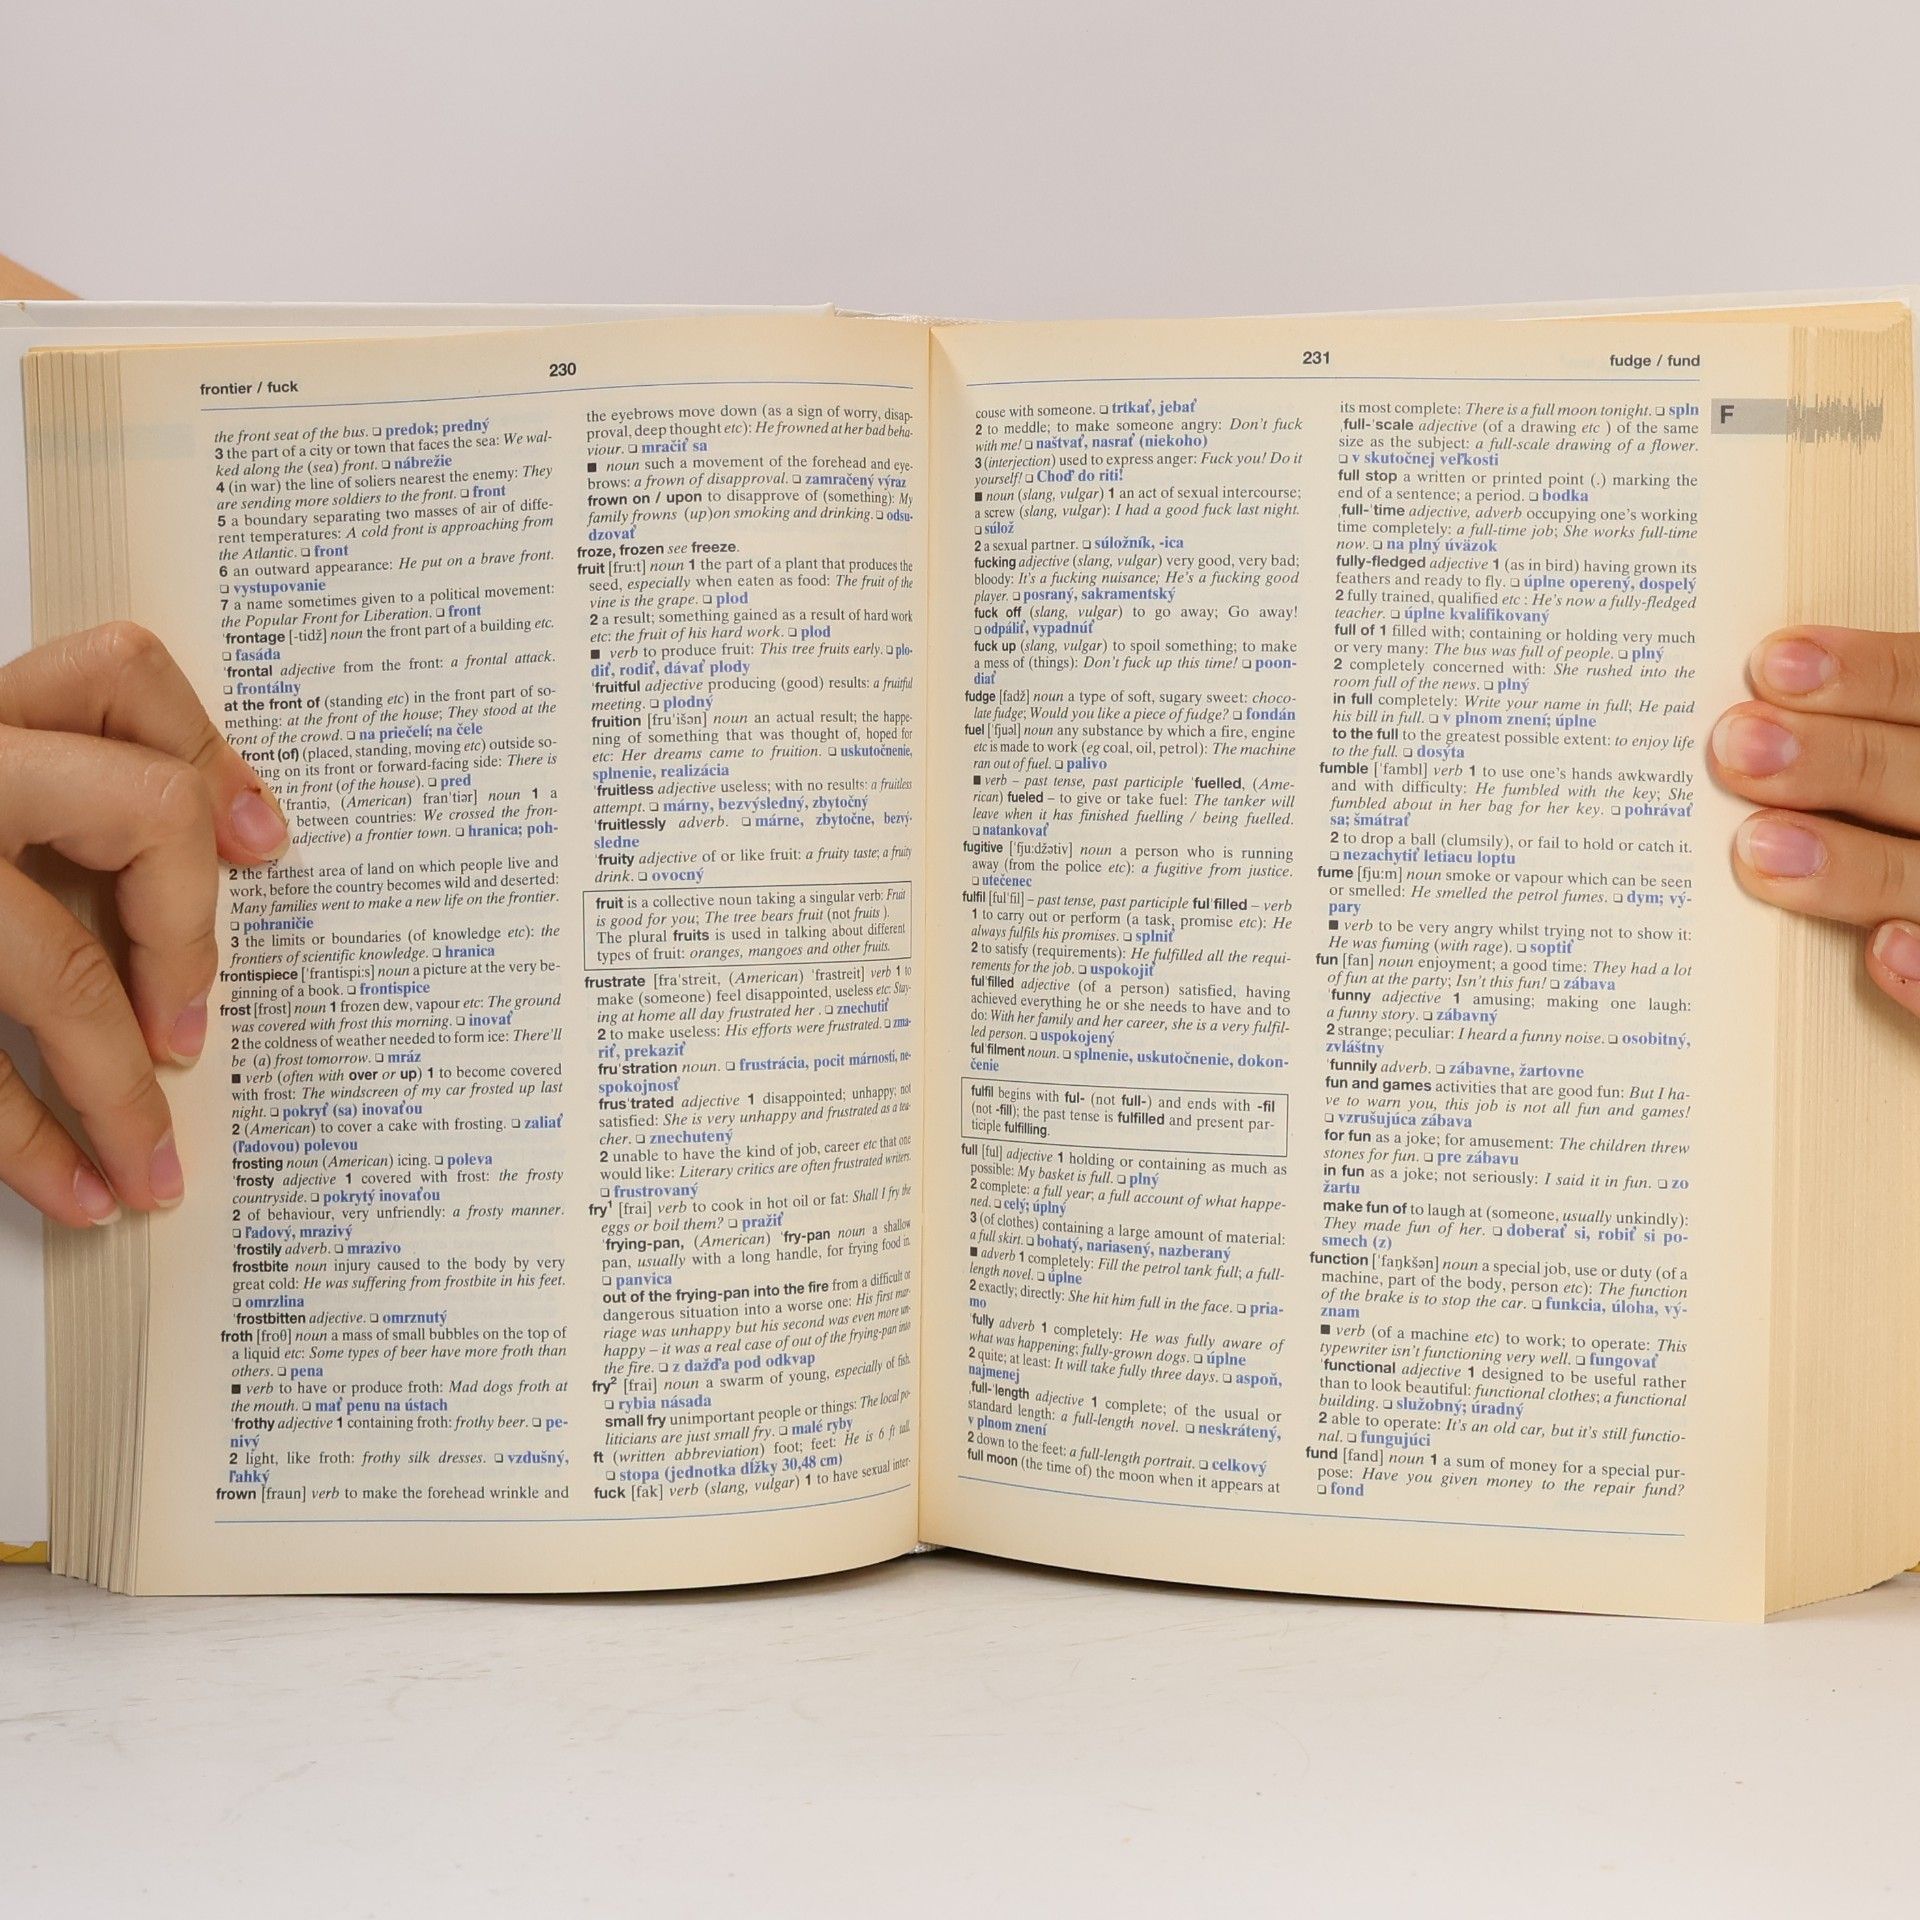 frontier / fuck
230
the front seat of the bus. ❑ predok; predný
3 the part of a city or town that faces the sea: We wal-
ked along the (sea) front. ❑ nábrežie
4 (in war) the line of soliers nearest the enemy: They
are sending more soldiers to the front. ❑ front
5 a boundary separating two masses of air of diffe-
rent temperatures: A cold front is approaching from
the Atlantic. ❑ front
6 an outward appearance: He put on a brave front.
❑ vystupovanie
7 a name sometimes given to a political movement:
the Popular Front for Liberation. ❑ front
ˈfrontage [-tidž] noun the front part of a building etc.
❑ fasáda
ˈfrontal adjective from the front: a frontal attack.
❑ frontálny
at the front of (standing etc) in the front part of so-
mething: at the front of the house; They stood at the
front of the crowd. ❑ na priečelí; na čele
front (of) (placed, standing, moving etc) outside so-
hing on its front or forward-facing side: There is
en in front (of the house). ❑ pred
[ˈfrantiə, (American) franˈtiər] noun 1 a
between countries: We crossed the fron-
adjective) a frontier town. ❑ hranica; poh-
2 the farthest area of land on which people live and
work, before the country becomes wild and deserted:
Many families went to make a new life on the frontier.
❑ pohraničie
3 the limits or boundaries (of knowledge etc): the
frontiers of scientific knowledge. ❑ hranica
frontispiece [ˈfrantispi:s] noun a picture at the very be-
ginning of a book. ❑ frontispice
frost [frost] noun 1 frozen dew, vapour etc: The ground
was covered with frost this morning. ❑ inovať
2 the coldness of weather needed to form ice: There'll
be (a) frost tomorrow. ❑ mráz
■ verb (often with over or up) 1 to become covered
with frost: The windscreen of my car frosted up last
night. ❑ pokryť (sa) inovaťou
2 (American) to cover a cake with frosting. ❑ zaliať
(ľadovou) polevou
frosting noun (American) icing. ❑ poleva
ˈfrosty adjective 1 covered with frost: the frosty
countryside. ❑ pokrytý inovaťou
2 of behaviour, very unfriendly: a frosty manner.
❑ ľadový, mrazivý
ˈfrostily adverb. ❑ mrazivo
frostbite noun injury caused to the body by very
great cold: He was suffering from frostbite in his feet.
❑ omrzlina
ˈfrostbitten adjective. ❑ omrznutý
froth [froθ] noun a mass of small bubbles on the top of
a liquid etc: Some types of beer have more froth than
others. ❑ pena
■ verb to have or produce froth: Mad dogs froth at
the mouth. ❑ mať penu na ústach
ˈfrothy adjective 1 containing froth: frothy beer. ❑ pe-
nivý
2 light, like froth: frothy silk dresses. ❑ vzdušný,
ľahký
frown [fraun] verb to make the forehead wrinkle and
the eyebrows move down (as a sign of worry, disap-
proval, deep thought etc): He frowned at her bad beha-
viour. ❑ mračiť sa
■ noun such a movement of the forehead and eye-
brows: a frown of disapproval. ❑ zamračený výraz
frown on / upon to disapprove of (something): My
family frowns (up)on smoking and drinking. ❑ odsu-
dzovať
froze, frozen see freeze.
fruit [fru:t] noun 1 the part of a plant that produces the
seed, especially when eaten as food: The fruit of the
vine is the grape. ❑ plod
2 a result; something gained as a result of hard work
etc: the fruit of his hard work. ❑ plod
■ verb to produce fruit: This tree fruits early. ❑ plo-
diť, rodiť, dávať plody
ˈfruitful adjective producing (good) results: a fruitful
meeting. ❑ plodný
fruition [fruˈišən] noun an actual result; the happe-
ning of something that was thought of, hoped for
etc: Her dreams came to fruition. ❑ uskutočnenie,
splnenie, realizácia
ˈfruitless adjective useless; with no results: a fruitless
attempt. ❑ márny, bezvýsledný, zbytočný
ˈfruitlessly adverb. ❑ márne, zbytočne, bezvý-
sledne
ˈfruity adjective of or like fruit: a fruity taste; a fruity
drink. ❑ ovocný
fruit is a collective noun taking a singular verb: Fruit
is good for you; The tree bears fruit (not fruits).
The plural fruits is used in talking about different
types of fruit: oranges, mangoes and other fruits.
frustrate [fraˈstreit, (American) ˈfrastreit] verb 1 to
make (someone) feel disappointed, useless etc: Stay-
ing at home all day frustrated her . ❑ znechutiť
2 to make useless: His efforts were frustrated. ❑ zma-
riť, prekaziť
fruˈstration noun. ❑ frustrácia, pocit márnosti, ne-
spokojnosť
frusˈtrated adjective 1 disappointed; unhappy; not
satisfied: She is very unhappy and frustrated as a tea-
cher. ❑ znechutený
2 unable to have the kind of job, career etc that one
would like: Literary critics are often frustrated writers.
❑ frustrovaný
fry¹ [frai] verb to cook in hot oil or fat: Shall I fry the
eggs or boil them? ❑ pražiť
ˈfrying-pan, (American) ˈfry-pan noun a shallow
pan, usually with a long handle, for frying food in.
❑ panvica
out of the frying-pan into the fire from a difficult or
dangerous situation into a worse one: His first mar-
riage was unhappy but his second was even more un-
happy – it was a real case of out of the frying-pan into
the fire. ❑ z dažďa pod odkvap
fry² [frai] noun a swarm of young, especially of fish.
❑ rybia násada
small fry unimportant people or things: The local po-
liticians are just small fry. ❑ malé ryby
ft (written abbreviation) foot; feet: He is 6 ft tall.
❑ stopa (jednotka dĺžky 30,48 cm)
fuck [fak] verb (slang, vulgar) 1 to have sexual inter-
231
fudge / fund
F
couse with someone. ❑ trtkať, jebať
2 to meddle; to make someone angry: Don't fuck
with me! ❑ naštvať, nasrať (niekoho)
3 (interjection) used to express anger: Fuck you! Do it
yourself! ❑ Choď do riti!
■ noun (slang, vulgar) 1 an act of sexual intercourse;
a screw (slang, vulgar): I had a good fuck last night.
❑ súlož
2 a sexual partner. ❑ súložník, -ica
fucking adjective (slang, vulgar) very good, very bad;
bloody: It's a fucking nuisance; He's a fucking good
player. ❑ posraný, sakramentský
fuck off (slang, vulgar) to go away; Go away!
❑ odpáliť, vypadnúť
fuck up (slang, vulgar) to spoil something; to make
a mess of (things): Don't fuck up this time! ❑ poon-
diať
fudge [fadž] noun a type of soft, sugary sweet: choco-
late fudge; Would you like a piece of fudge? ❑ fondán
fuel [ˈfjuəl] noun any substance by which a fire, engine
etc is made to work (eg coal, oil, petrol): The machine
ran out of fuel. ❑ palivo
■ verb – past tense, past participle ˈfuelled, (Ame-
rican) fueled – to give or take fuel: The tanker will
leave when it has finished fuelling / being fuelled.
❑ natankovať
fugitive [ˈfju:džətiv] noun a person who is running
away (from the police etc): a fugitive from justice.
❑ utečenec
fulfil [fulˈfil] – past tense, past participle fulˈfilled – verb
1 to carry out or perform (a task, promise etc): He
always fulfils his promises. ❑ splniť
2 to satisfy (requirements): He fulfilled all the requi-
rements for the job. ❑ uspokojiť
fulˈfilled adjective (of a person) satisfied, having
achieved everything he or she needs to have and to
do: With her family and her career, she is a very fulfil-
led person. ❑ uspokojený
fulˈfilment noun. ❑ splnenie, uskutočnenie, dokon-
čenie
fulfil begins with ful- (not full-) and ends with -fil
(not -fill); the past tense is fulfilled and present par-
ticiple fulfilling.
full [ful] adjective 1 holding or containing as much as
possible: My basket is full. ❑ plný
2 complete: a full year; a full account of what happe-
ned. ❑ celý; úplný
3 (of clothes) containing a large amount of material:
a full skirt. ❑ bohatý, nariasený, nazberaný
■ adverb 1 completely: Fill the petrol tank full; a full-
length novel. ❑ úplne
2 exactly; directly: She hit him full in the face. ❑ pria-
mo
ˈfully adverb 1 completely: He was fully aware of
what was happening; fully-grown dogs. ❑ úplne
2 quite; at least: It will take fully three days. ❑ aspoň,
najmenej
ˌfull-ˈlength adjective 1 complete; of the usual or
standard length: a full-length novel. ❑ neskrátený,
v plnom znení
2 down to the feet: a full-length portrait. ❑ celkový
full moon (the time of) the moon when it appears at
its most complete: There is a full moon tonight. ❑ spln
ˌfull-ˈscale adjective (of a drawing etc ) of the same
size as the subject: a full-scale drawing of a flower.
❑ v skutočnej veľkosti
full stop a written or printed point (.) marking the
end of a sentence; a period. ❑ bodka
ˌfull-ˈtime adjective, adverb occupying one's working
time completely: a full-time job; She works full-time
now. ❑ na plný úväzok
fully-fledged adjective 1 (as in bird) having grown its
feathers and ready to fly. ❑ úplne operený, dospelý
2 fully trained, qualified etc : He's now a fully-fledged
teacher. ❑ úplne kvalifikovaný
full of 1 filled with; containing or holding very much
or very many: The bus was full of people. ❑ plný
2 completely concerned with: She rushed into the
room full of the news. ❑ plný
in full completely: Write your name in full; He paid
his bill in full. ❑ v plnom znení; úplne
to the full to the greatest possible extent: to enjoy life
to the full. ❑ dosýta
fumble [ˈfambl] verb 1 to use one's hands awkwardly
and with difficulty: He fumbled with the key; She
fumbled about in her bag for her key. ❑ pohrávať
sa; šmátrať
2 to drop a ball (clumsily), or fail to hold or catch it.
❑ nezachytiť letiacu loptu
fume [fju:m] noun smoke or vapour which can be seen
or smelled: He smelled the petrol fumes. ❑ dym; vý-
pary
■ verb to be very angry whilst trying not to show it:
He was fuming (with rage). ❑ soptiť
fun [fan] noun enjoyment; a good time: They had a lot
of fun at the party; Isn't this fun! ❑ zábava
ˈfunny adjective 1 amusing; making one laugh:
a funny story. ❑ zábavný
2 strange; peculiar: I heard a funny noise. ❑ osobitný,
zvláštny
ˈfunnily adverb. ❑ zábavne, žartovne
fun and games activities that are good fun: But I ha-
ve to warn you, this job is not all fun and games!
❑ vzrušujúca zábava
for fun as a joke; for amusement: The children threw
stones for fun. ❑ pre zábavu
in fun as a joke; not seriously: I said it in fun. ❑ zo
žartu
make fun of to laugh at (someone, usually unkindly):
They made fun of her. ❑ doberať si, robiť si po-
smech (z)
function [ˈfaŋkšən] noun a special job, use or duty (of a
machine, part of the body, person etc): The function
of the brake is to stop the car. ❑ funkcia, úloha, vý-
znam
■ verb (of a machine etc) to work; to operate: This
typewriter isn't functioning very well. ❑ fungovať
ˈfunctional adjective 1 designed to be useful rather
than to look beautiful: functional clothes; a functional
building. ❑ služobný; úradný
2 able to operate: It's an old car, but it's still functio-
nal. ❑ fungujúci
fund [fand] noun 1 a sum of money for a special pur-
pose: Have you given money to the repair fund?
❑ fond